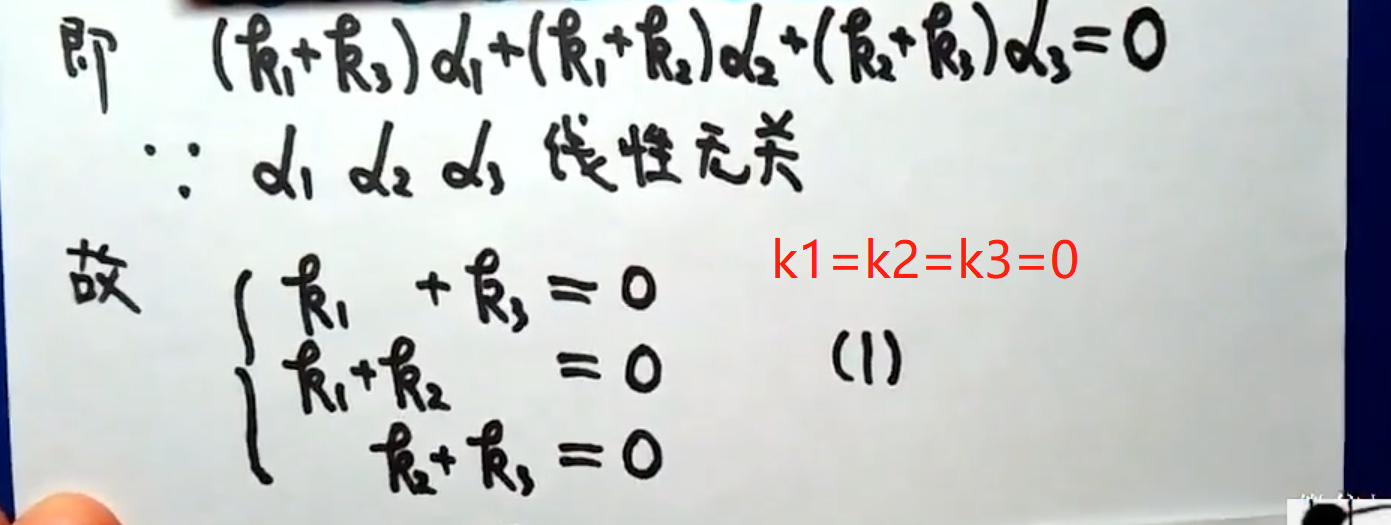 即 (k₁+k₃)α₁+(k₁+k₂)α₂+(k₂+k₃)α₃=0
∵ α₁ α₂ α₃ 线性无关
故 { k₁ +k₃=0
k1=k2=k3=0
k₁+k₂ =0 (1)
k₂+k₃=0